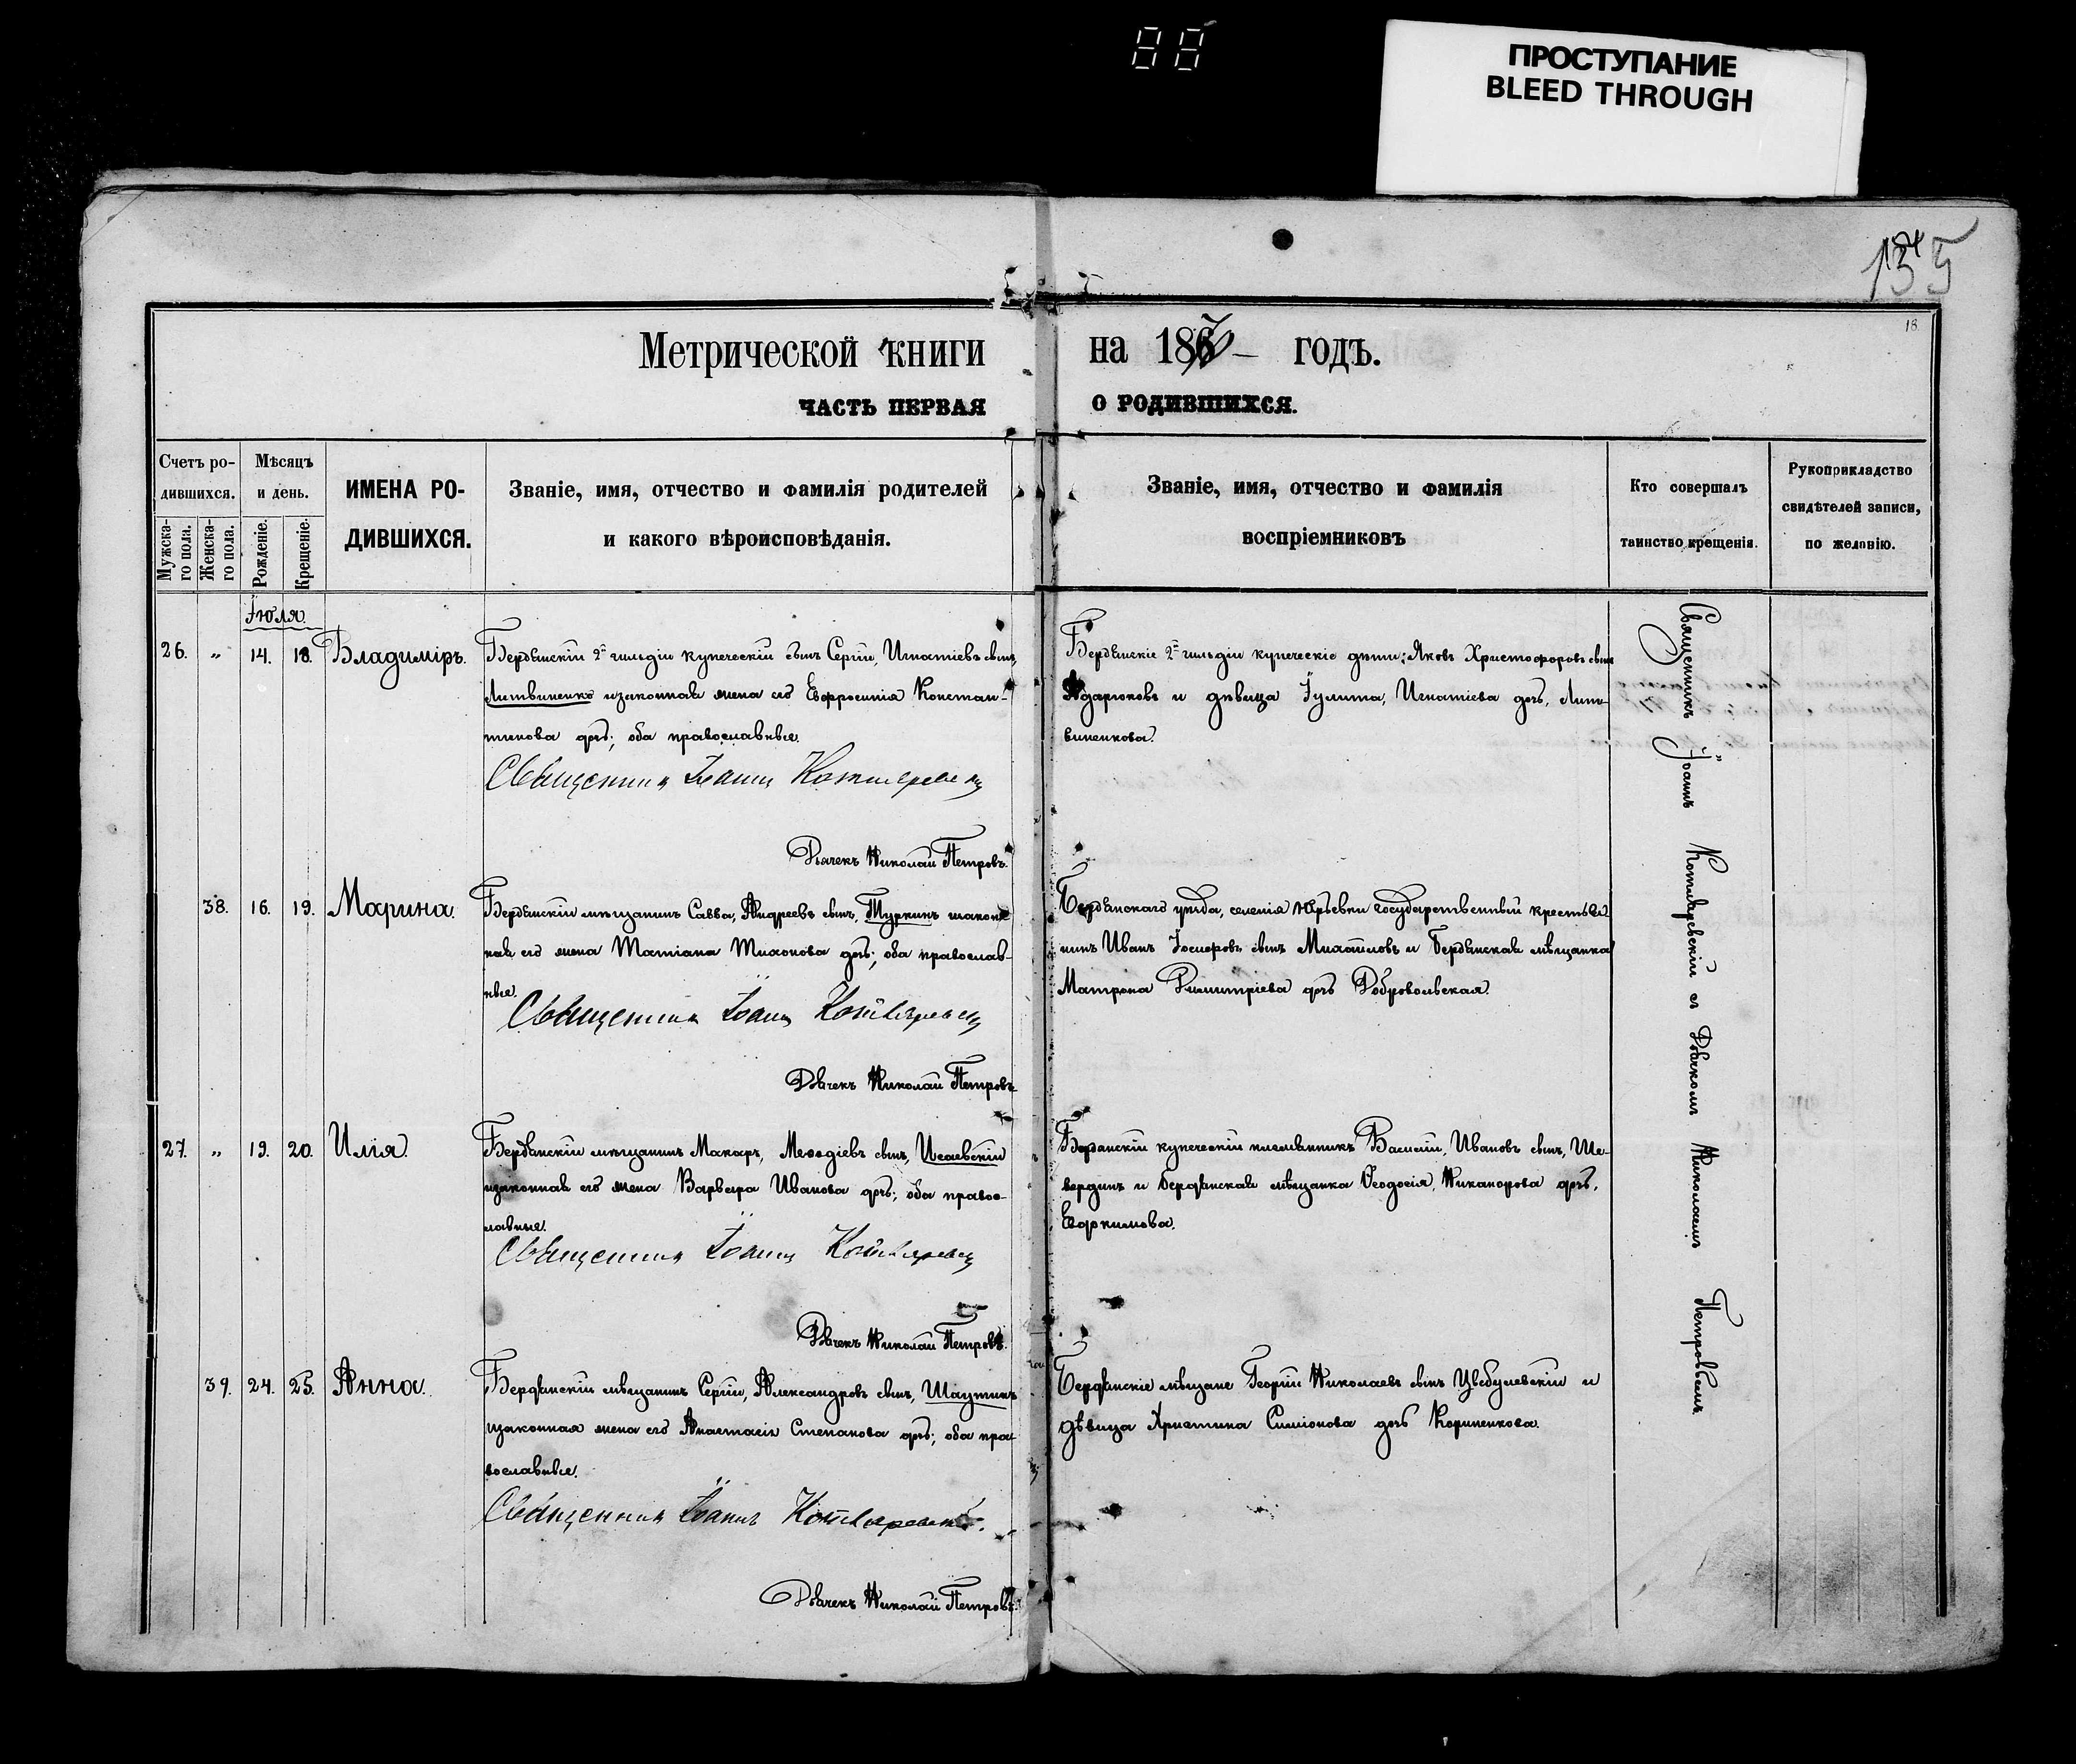 88
ПРОСТУПАНИЕ
BLEED THROUGH
135
18
Метрической книги на 1870 годъ.
ЧАСТЬ ПЕРВАЯ О РОДИВШИХСЯ.
Счетъ ро-
дившихся.
Мужска-
го пола.
Женска-
го пола.
Мѣсяцъ
и день.
Рожденіе.
Крещеніе.
ИМЕНА РО-
ДИВШИХСЯ.
Званіе, имя, отчество и фамилія родителей
и какого вѣроисповѣданія.
Званіе, имя, отчество и фамилія
воспріемниковъ
Кто совершалъ
таинство крещенія.
Рукоприкладство
свидѣтелей записи,
по желанію.
Іюля.
26. „ 14. 18. Владиміръ.
Бердянскій 2й гильдіи купеческій сынъ Сергій, Игнатіевъ сынъ,
Литвиненко и законная жена его Евфросинія Констан-
тинова дочь; оба православные.
Священникъ Іоаннъ Котляревскій
Дьячекъ Николай Петровъ.
Бердянскіе 2й гильдіи купеческіе дѣти: Яковъ Христофоровъ сынъ
и дѣвица Іулита, Игнатіева дочь, Лит-
виненкова.
38. 16. 19. Марина.
Бердянскій мѣщанинъ Савва, Андреевъ сынъ, Туркинъ и закон-
ная его жена Татіана Тихонова дочь; оба православ-
ные.
Священникъ Іоаннъ Котляревскій
Дьячекъ Николай Петровъ
Бердянскаго уѣзда, селенія Юрьевки государственный крестья-
нинъ Иванъ Іосифовъ сынъ Михайловъ и Бердянская мѣщанка
Матрона Димитріева дочь Добровольская.
27. „ 19. 20. Илія.
Бердянскій мѣщанинъ Макаръ, Меѳодіевъ сынъ, Исаевскій
и законная его жена Варвара Иванова дочь; оба право-
славные.
Священникъ Іоаннъ Котляревскій
Дьячекъ Николай Петровъ.
Бердянскій купеческій племянникъ Василій, Ивановъ сынъ, Ше-
вердинъ и бердянская мѣщанка Ѳеодосія, Никанорова дочь,
Евдокимова.
39. 24. 25. Анна.
Бердянскій мѣщанинъ Сергій, Александровъ сынъ, Шаутинъ
и законная жена его Анастасія Степанова дочь; оба пра-
вославные.
Священникъ Іоаннъ Котляревскій.
Дьячекъ Николай Петровъ.
Бердянскіе мѣщане Георгій Николаевъ сынъ и
дѣвица Христина Симіонова дочь Корниенкова.
Священникъ Іоаннъ Котляревскій съ Дьячкомъ Николаемъ Петровымъ.